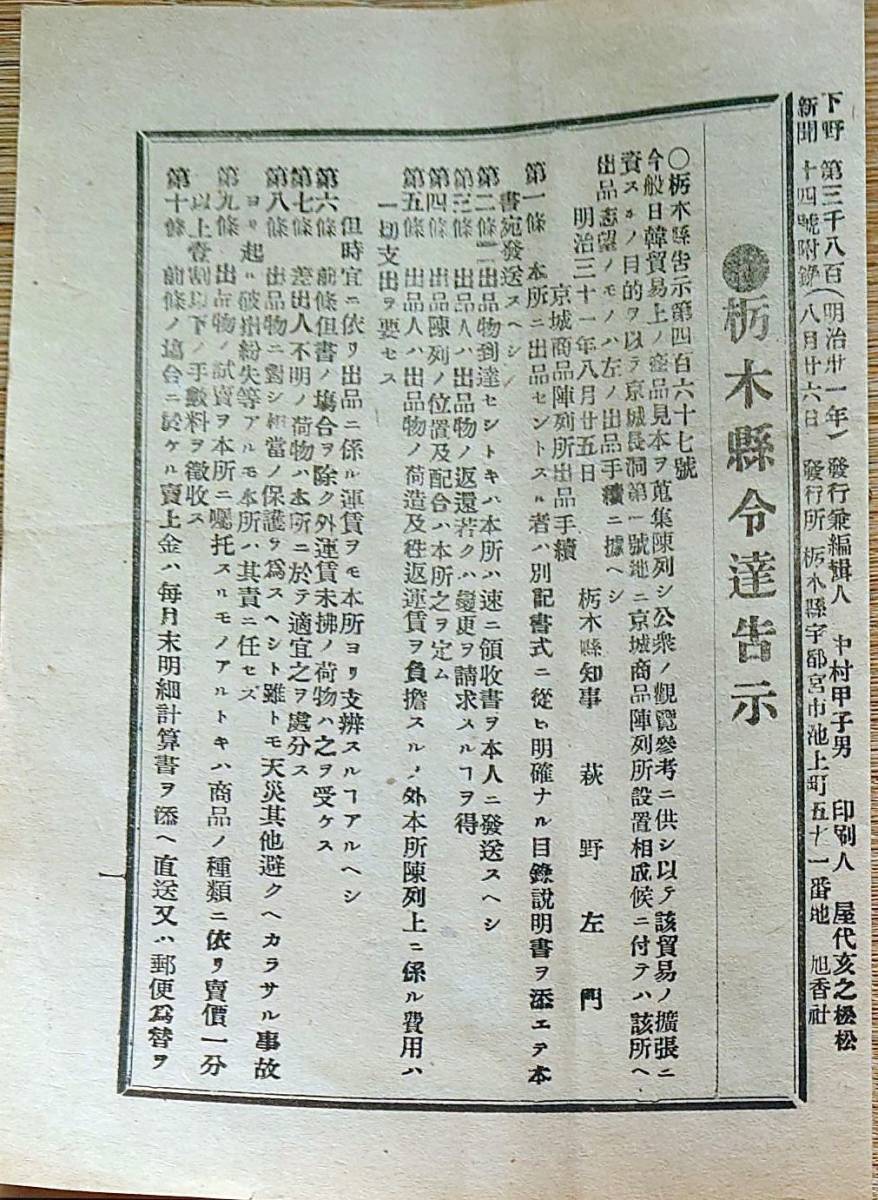 下野新聞 第三千八百十四號附錄(明治卅一年八月廿六日) 發行兼編輯人 中村甲子男 印刷人 屋代亥之松
發行所 栃木縣宇都宮市池上町五十一番地 旭香社
栃木縣令達告示
〇栃木縣告示第四百六十七號
今般日韓貿易上ノ產品見本ヲ蒐集陳列シ公衆ノ觀覽參考ニ供シ以テ該貿易ノ擴張ニ
資スルノ目的ヲ以テ京城長洞第一號地ニ京城商品陣列所設置相成候ニ付テハ該所ヘ
出品志望ノモノハ左ノ出品手續ニ據ヘシ
明治三十一年八月廿五日 栃木縣知事 萩野左門
京城商品陣列所出品手續
第一條 本所ニ出品セントスル者ハ別記書式ニ從ヒ明確ナル目錄說明書ヲ添エテ本
書宛發送スヘシ
第二條 出品物到達セシトキハ本所ハ速ニ領收書ヲ本人ニ發送スヘシ
第三條 出品人ハ出品物ノ返還若クハ變更ヲ請求スルヿヲ得
第四條 出品陳列ノ位置及配合ハ本所之ヲ定ム
第五條 出品人ハ出品物ノ荷造及往返運賃ヲ負擔スルノ外本所陳列上ニ係ル費用ハ
一切支出ヲ要セス
但時宜ニ依リ出品ニ係ル運賃ヲモ本所ヨリ支辨スルヿアルヘシ
第六條 前條但書ノ塲合ヲ除ク外運賃未拂ノ荷物ハ之ヲ受ケス
第七條 差出人不明ノ荷物ハ本所ニ於テ適宜之ヲ處分ス
第八條 出品物ニ對シ相當ノ保護ヲ爲スヘシト雖トモ天災其他避クヘカラサル事故
ヨリ起ル破損紛失等アルモ本所ハ其責ニ任セズ
第九條 出品物ノ試賣ヲ本所ニ囑托スルモノアルトキハ商品ノ種類ニ依リ賣價一分
以上壹割以下ノ手數料ヲ徵收ス
第十條 前條ノ塲合ニ於ケル賣上金ハ每月末明細計算書ヲ添ヘ直送又ハ郵便爲替ヲ
一